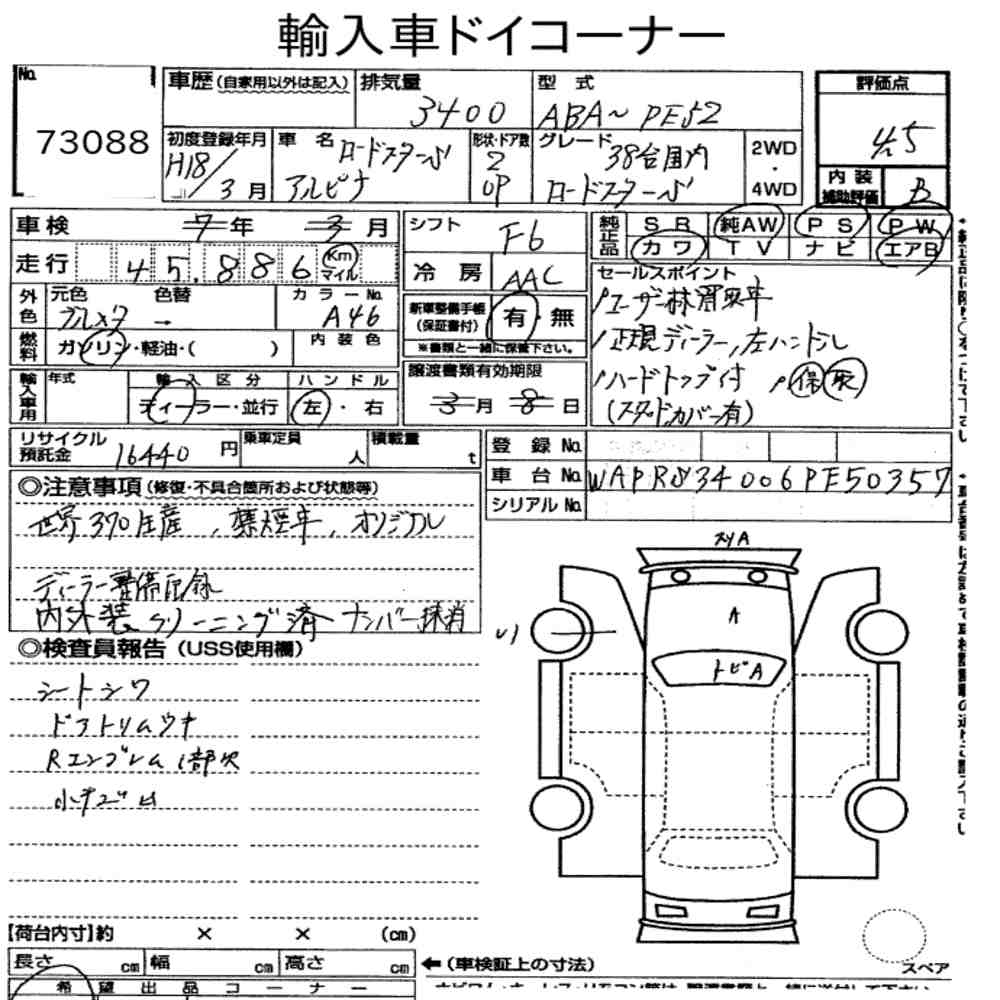 輸入車ドイコーナー
No.
73088
車歴(自家用以外は記入)
排気量
3400
型式
ABA〜PE52
評価点
4.5
初度登録年月
H18/3月
車名
ロードスターS
アルピナ
形状・ドア数
2
OP
グレード
38台国内
ロードスターS
2WD
・
4WD
内装
補助評価
B
車検
7年 3月
シフト
F6
純正品
SR 純AW PS PW
カワ TV ナビ エアB
走行
45,886 Km マイル
冷房
AAC
外色
元色 色替 カラーNo.
ブルメタ → A46
新車整備手帳
(保証書付)
有・無
※書類と一緒に保管下さい。
セールスポイント
ユーザー抹消車
正規ディーラー,左ハンドル
ハードトップ付 保 取
(スタンドカバー有)
燃料
ガソリン・軽油・( )
内装色
輸入車用
年式
輸入区分
ハンドル
ディーラー・並行
左・右
譲渡書類有効期限
3月 8日
リサイクル
預託金
16440円
乗車定員
人
積載量
t
登録No.
車台No.
WAPRS34006PE50357
シリアルNo.
◎注意事項(修復・不具合箇所および状態等)
世界370生産,禁煙車,オリジナル
ディーラー整備記録
内外装クリーニング済 ナンバー抹消
◎検査員報告(USS使用欄)
シートシワ
ドアトリムウキ
Rエンブレム1部欠
小キズ凹
スリA
A
トビA
【荷台内寸】約 × × (cm)
長さ cm 幅 cm 高さ cm
←(車検証上の寸法)
スペア
希望出品コーナー